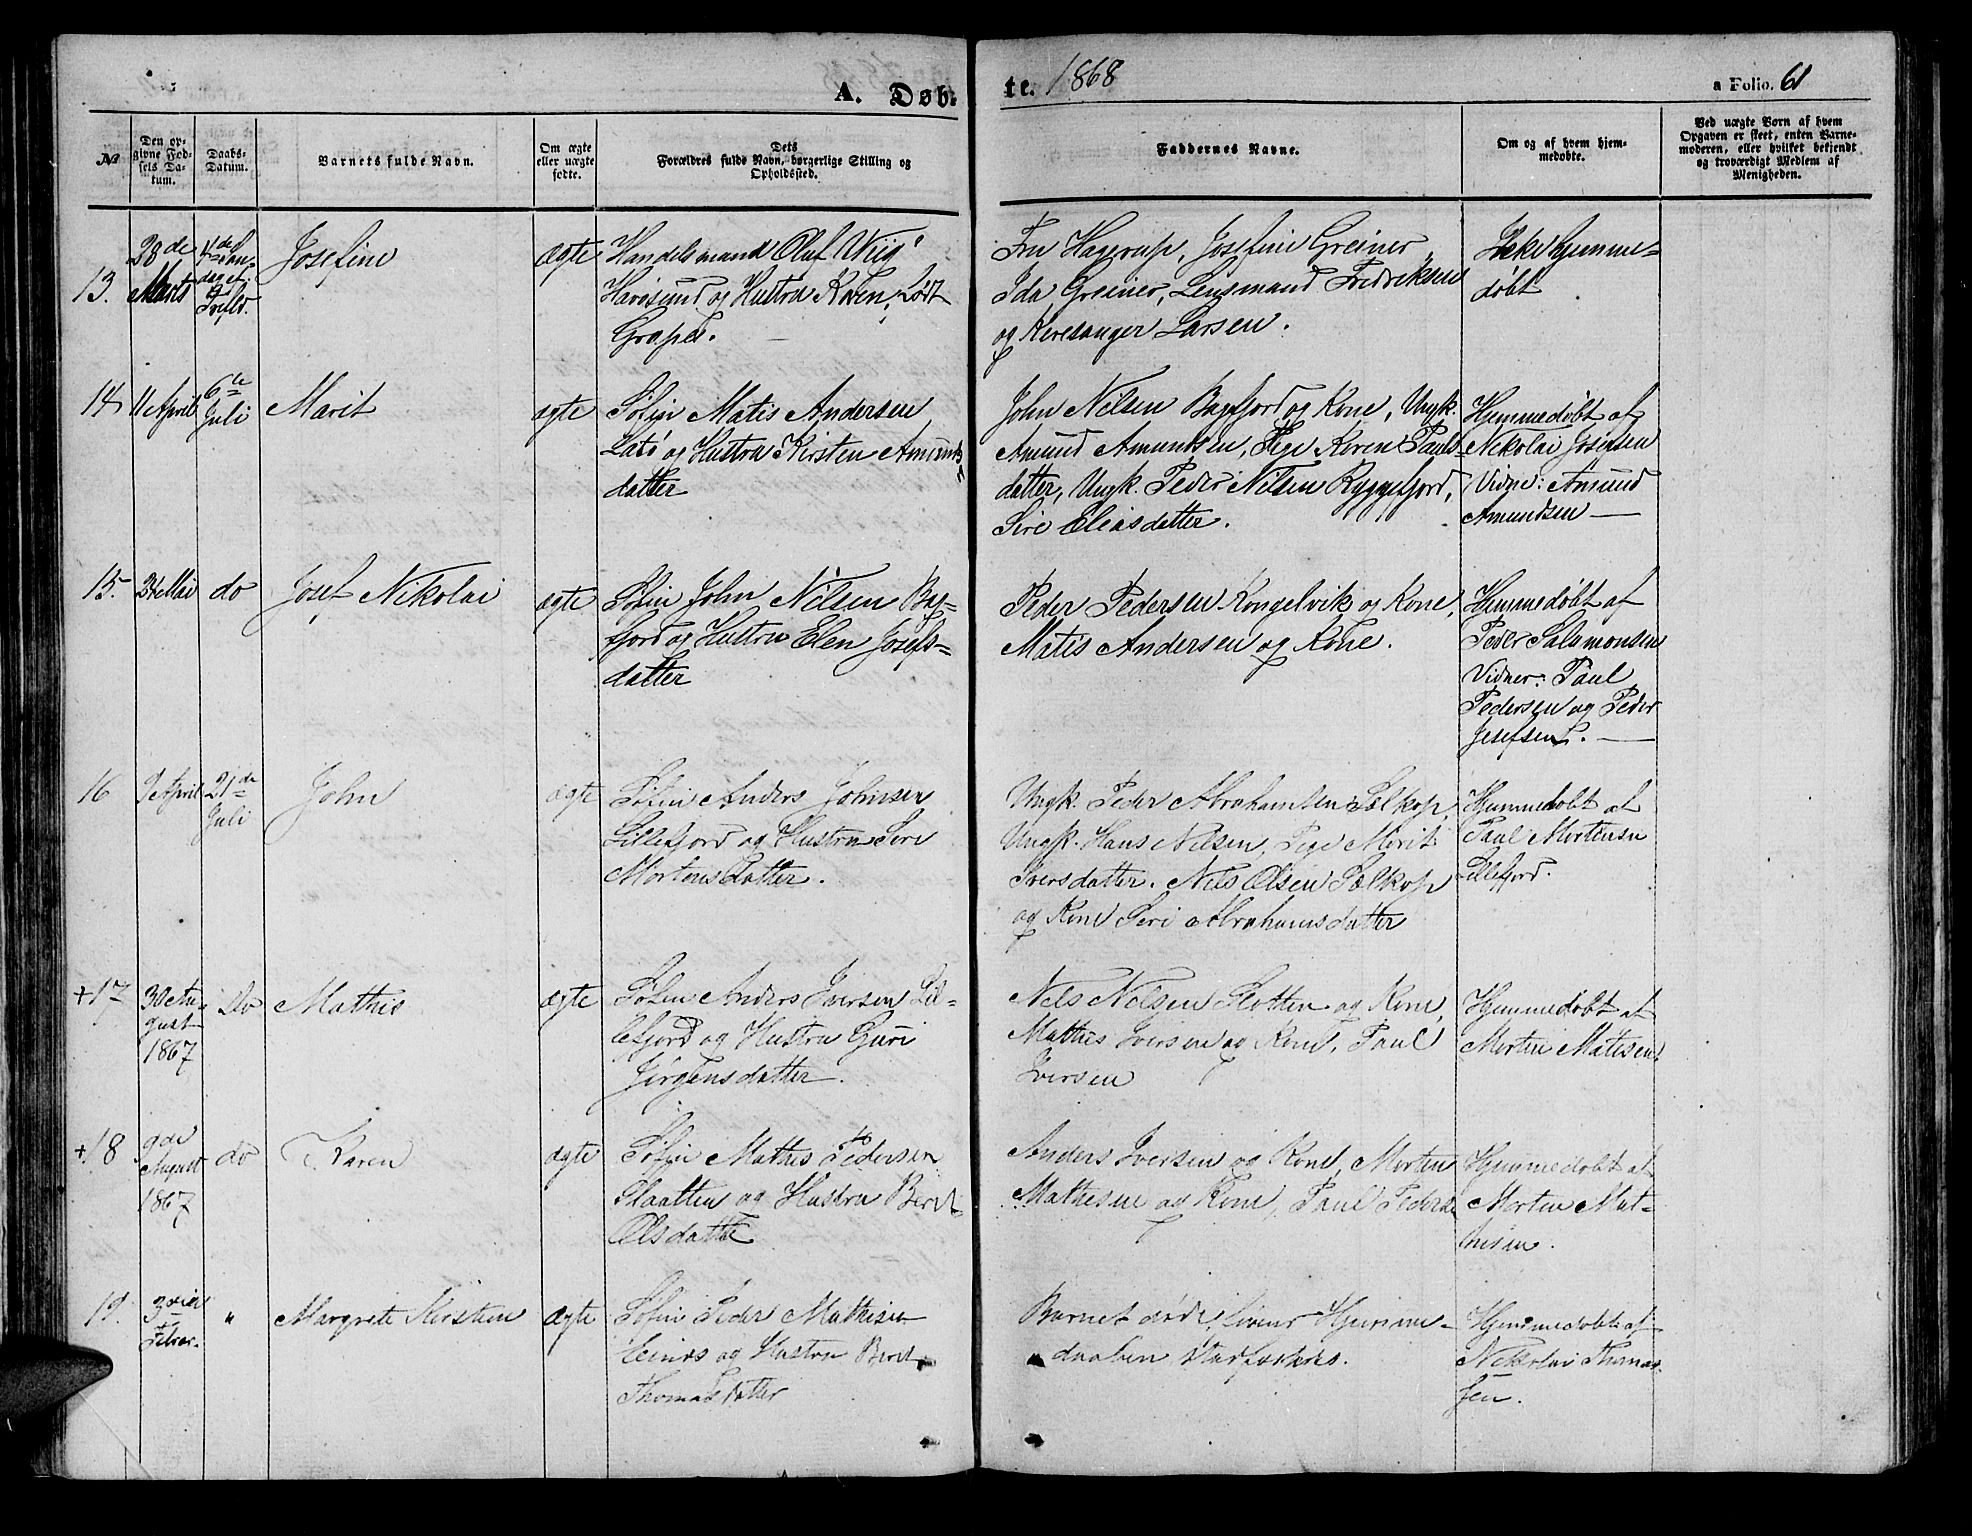 A. Døb-
te. 1868
a Folio. 61
No
Den op-
givne Fød-
sels Da-
tum.
Daabs-
Datum.
Barnets fulde Navn.
Om ægte
eller uægte
fødte.
Dets
Forældres fulde Navn, borgerlige Stilling og
Opholdssted.
Faddernes Navne.
Om og af hvem hjem-
medøbte.
Ved uægte Børn af hvem
Opgaven er skeet, enten Barne-
moderen, eller hvilket bekjendt
og troværdigt Medlem af
Menigheden.
13.
28de
Marts
4de Søn-
dag ef.
Josefine
ægte
Handelsmand Oluf Wiig
Havøsund og Hustru Karen, født
Grape.
Fru Hagerup, Josefine Greiner,
Ida Greiner, Lensmand Fredriksen
og Kiresanger Larsen.
Ikke hjemme-
døbt
14
11 April
6te
Juli
Marit
ægte
Søfin Matis Andersen
Latø og Hustru Kirsten Amunds
datter
John Nilsen Bagfjord og Kone, Ungk.
Amund Amundsen, Pige Karen Pauls-
datter, Ungk. Peder Nilsen Ryggefjord,
Sire Eliasdatter.
Hjemmedøbt af
Nikolai Josefsen
Vidne: Amund
Amundsen
15.
24 Mai
do
Josef Nikolai
ægte
Søfin John Nilsen Bag-
fjord og Hustru Elen Josefs-
datter
Peder Pedersen Kongelvik og Kone,
Matis Andersen og Kone.
Hjemmedøbt af
Peder Salamonsen
Vidner: Paul
Pedersen og Peder
Josefsen.
16
9 April
21de
Juli
John
ægte
Søfin Anders Johnsen
Lillefjord og Hustru Sire
Mortensdatter.
Ungk. Peder Abrahamsen Selkop,
Ungk. Hans Nilsen, Pige Marit
Iversdatter. Nils Olsen Selkop
og Kone Siri Abrahamsdatter
Hjemmedøbt af
Paul Mortensen
Lillefjord.
+17
30 Au-
gust
1867
Do
Mathis
ægte
Søfin Anders Iversen Lil-
lefjord og Hustru Guri
Jørgensdatter.
Nils Nilsen Slotten og Kone,
Mathis Iversen og Kone, Paul
Iversen
Hjemmedøbt af
Morten Matisen
+18
9de
August
1867
do
Karen
ægte
Søfin Mathis Pedersen
Slaatten og Hustru Berit
Olsdatter
Anders Iversen og Kone, Morten
Mathisen og Kone, Paul Peders.
Hjemmedøbt af
Morten Mat-
hisen.
19.
3die
Febr.
"
Margrete Kirstine
ægte
Søfin Peder Mathisen
og Hustru Berit
Thomasdatter
Barnet døde, Hjemme-
daaben
Hjemmedøbt af
Nikolai Thomas-
sen.